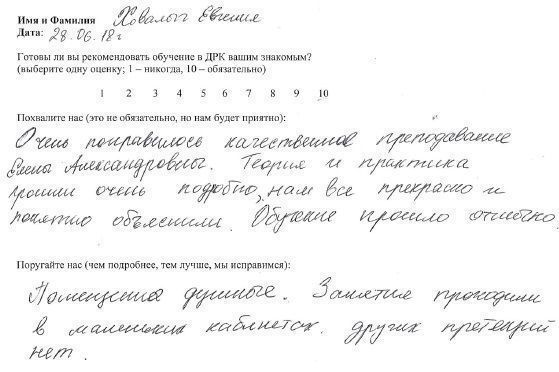 Имя и Фамилия Ховалыг Евгения
Дата: 28.06.18г
Готовы ли вы рекомендовать обучение в ДРК вашим знакомым?
(выберите одну оценку; 1 – никогда, 10 – обязательно)
1 2 3 4 5 6 7 8 9 10
Похвалите нас (это не обязательно, но нам будет приятно):
Очень понравилось качественное преподавание
Елены Александровны. Теория и практика
прошли очень подробно, нам все прекрасно и
понятно объяснили. Обучение прошло отлично
Поругайте нас (чем подробнее, тем лучше, мы исправимся):
Помещения душные. Занятия проходили
в маленьких кабинетах. других претензий
нет.